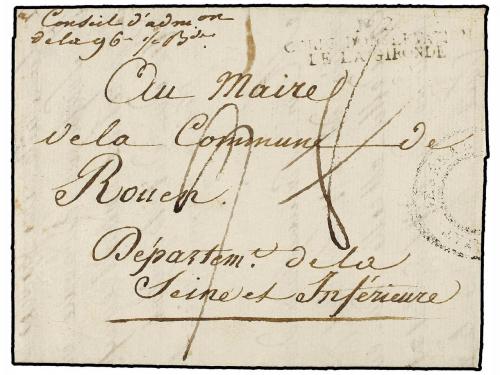 Conseil d'admon
de la 96e ½ Bde
CORPS D'OBSERVATION
DE LA GIRONDE
Au Maire
de la Commune de
Rouen.
Départem.t de la
Seine et Inférieure